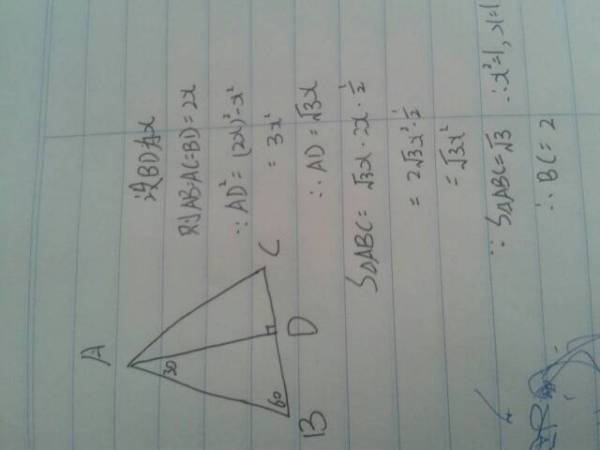 A
30
60
B
D
C
设BD为x
则AB=AC=BD=2x
∴AD²=(2x)²-x²
=3x²
∴AD=√3x
S△ABC=√3x·2x·1/2
=2√3x²·1/2
=√3x²
∵S△ABC=√3 ∴x²=1,x=1
∴BC=2